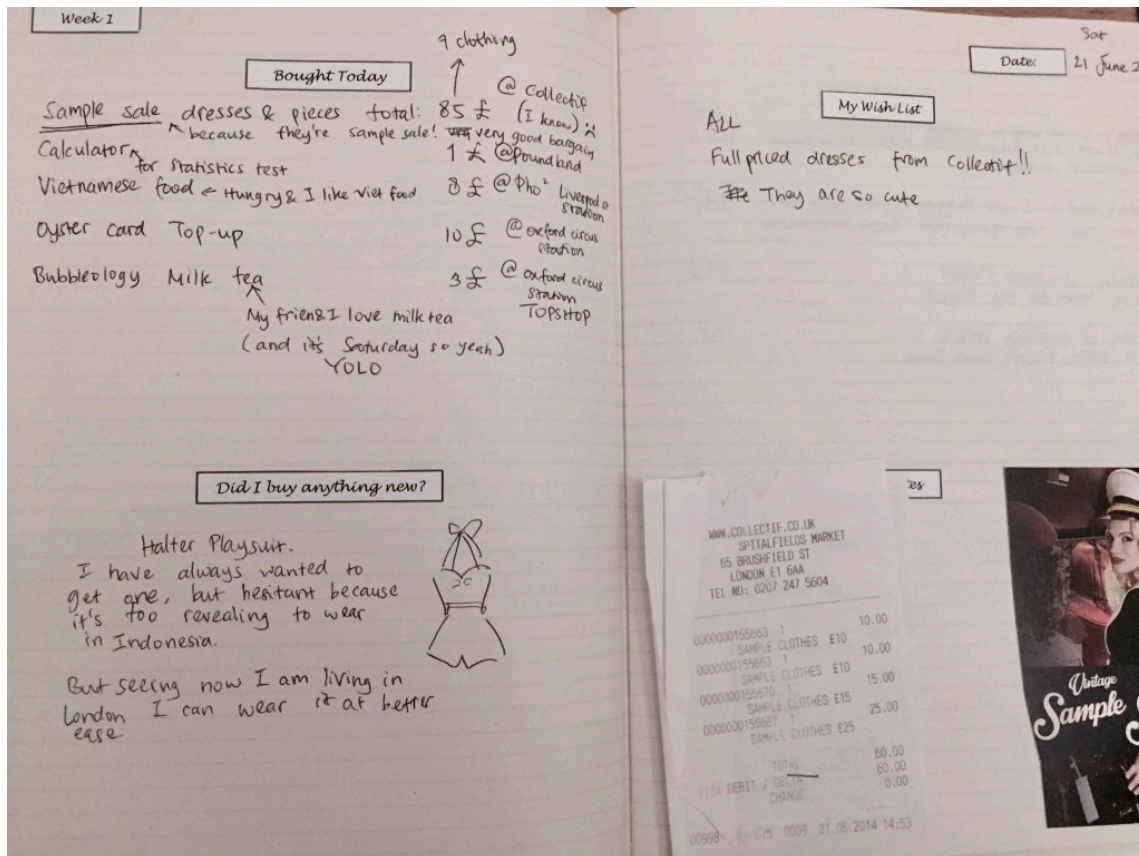 Week 1
Bought Today
9 clothing
Sample sale dresses & pieces total: 85 £ @ Collectif
(I know) :(
because they're sample sale! very good bargain
Calculator 1 £ @Poundland
for statistics test
Vietnamese food ← Hungry & I like Viet food 8 £ @Pho² Liverpool st
station
Oyster card Top-up 10 £ @ oxford circus
station
Bubbleology Milk tea 3 £ @ oxford circus
station
TOPSHOP
My frien&I love milk tea
(and it's Saturday so yeah)
YOLO
Did I buy anything new?
Halter Playsuit.
I have always wanted to
get one, but hesitant because
it's too revealing to wear
in Indonesia.
But seeing now I am living in
London I can wear it at better
ease
Sat
Date: 21 June 2
My Wish List
ALL
Full priced dresses from Collectif!!
They are so cute
es
WWW.COLLECTIF.CO.UK
SPITALFIELDS MARKET
65 BRUSHFIELD ST
LONDON E1 6AA
TEL NO: 0207 247 5604
0000000155663 1 10.00
SAMPLE CLOTHES £10
0000000155663 1 10.00
SAMPLE CLOTHES £10
0000000155670 1 15.00
SAMPLE CLOTHES £15
0000000155687 1 25.00
SAMPLE CLOTHES £25
TOTAL 60.00
VISA DEBIT / DELTA 60.00
CHANGE 0.00
0009 21.06.2014 14:53
Vintage
Sample S